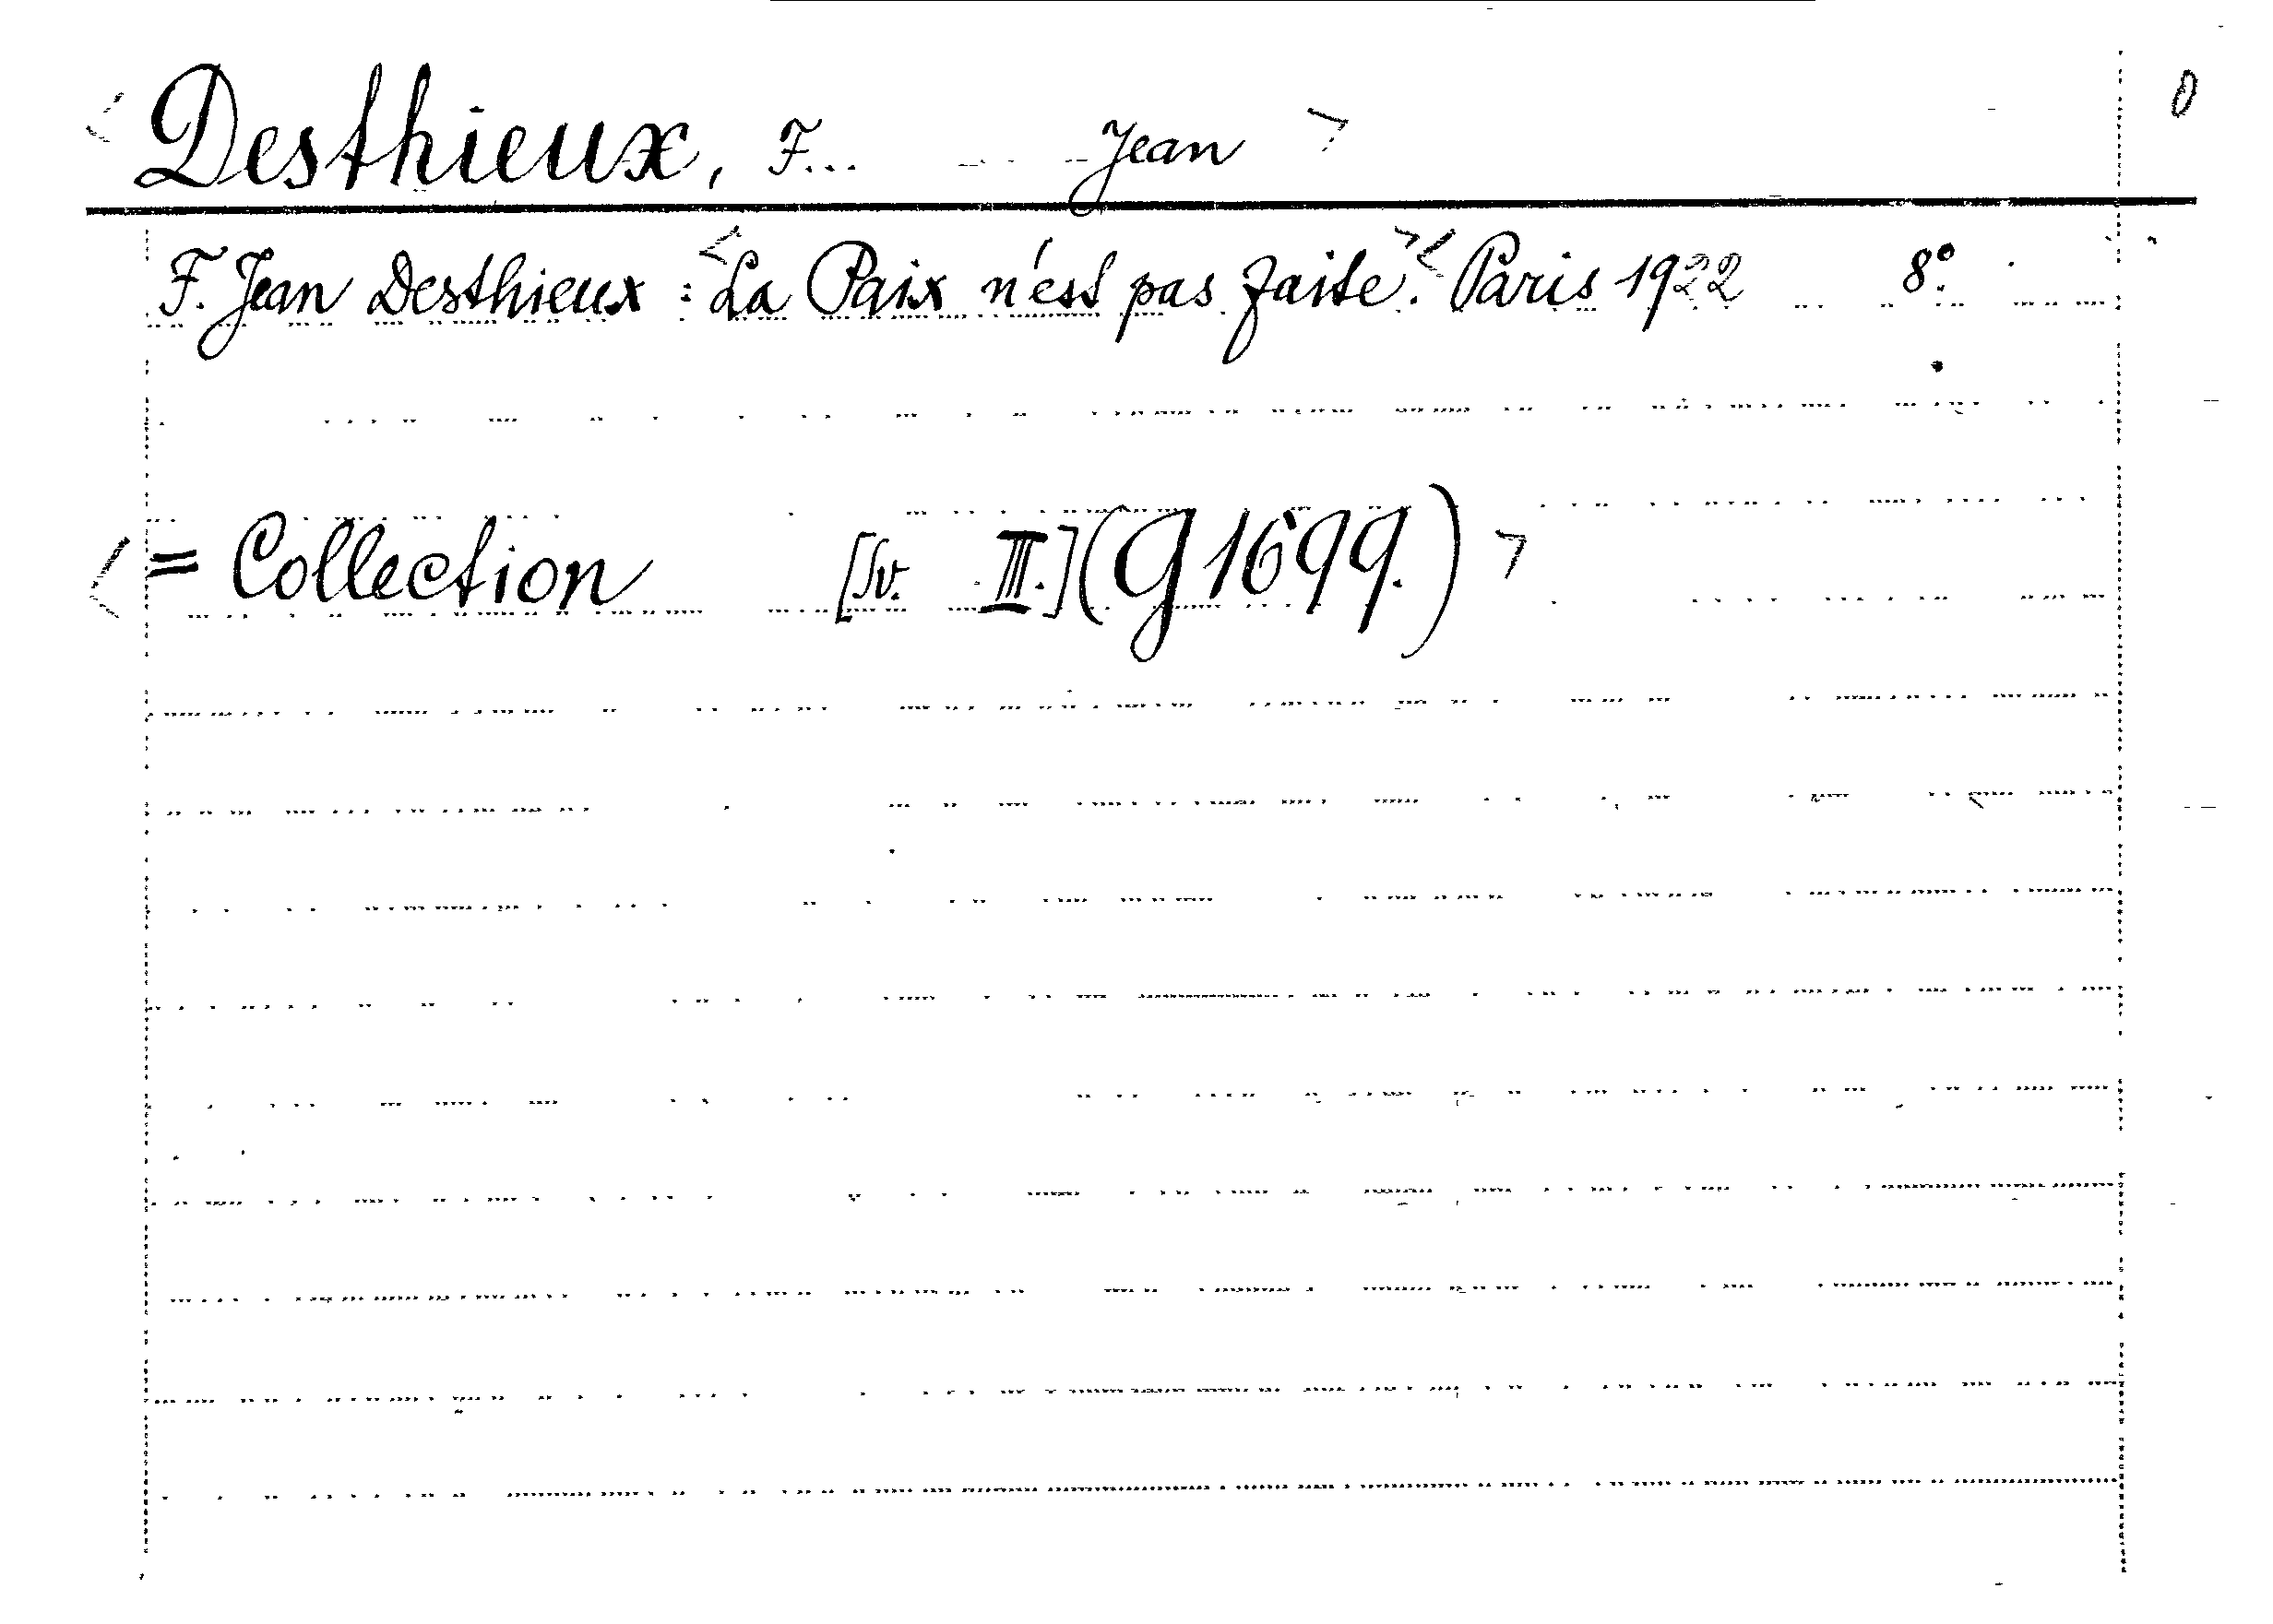 < Desthieux, F... Jean > 0
F. Jean Desthieux : <La Paix n'est pas faite.> < Paris 1922 8º.
< = Collection [Sv. III.] (G 1699.) >